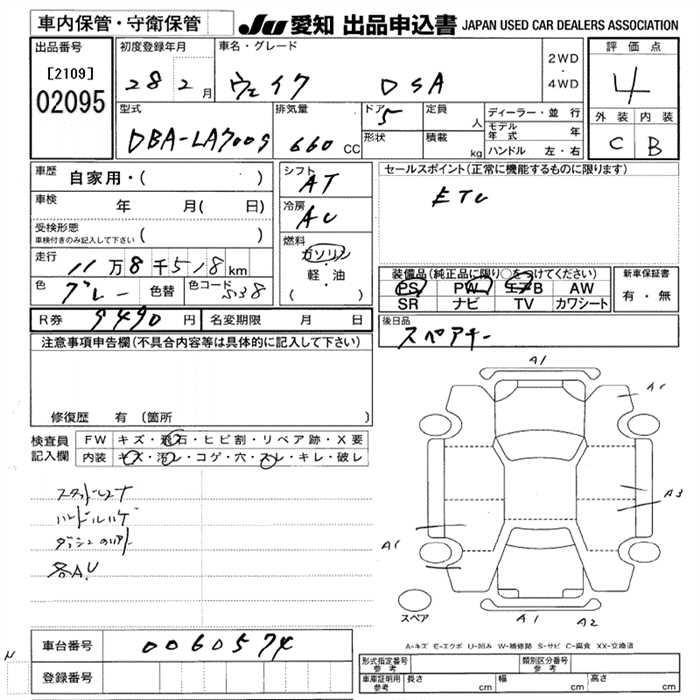 車内保管・守衛保管
JU 愛知 出品申込書 JAPAN USED CAR DEALERS ASSOCIATION
出品番号
[2109]
02095
初度登録年月
28 2月
車名・グレード
ウェイク DSA
2WD・4WD
評価点
4
外装 内装
C B
型式
DBA-LA700S
排気量
660 CC
ドア
5
形状
定員
人
積載
kg
ディーラー・並行
モデル年式 年
ハンドル 左・右
車歴
自家用・( )
車検
年 月( 日)
受検形態
車検付きのみ記入して下さい ( )
走行
11万8千518km
色
グレー
色替
色コード
S38
シフト
AT
冷房
AC
燃料
ガソリン・
軽・油
( )
セールスポイント(正常に機能するものに限ります)
ETC
装備品(純正品に限り○をつけてください)
PS PW エアB AW
SR ナビ TV カワシート
新車保証書
有・無
R券 9490円 名変期限 月 日
後日品
スペアキー
注意事項申告欄(不具合内容等は具体的に記入して下さい)
修復歴 有(箇所 )
検査員記入欄
FW キズ・飛石・ヒビ割・リペア跡・X要
内装 キズ・汚レ・コゲ・穴・スレ・キレ・破レ
ハンドルハゲ
各A.U
A1
A1
A3
A1
A1 A2
スペア
A-キズ E-エクボ U-凹み W-補修跡 S-サビ C-腐食 XX-交換済
車台番号 0060574
登録番号
N
形式指定番号 参考
類別区分番号 参考
車庫証明用 参考
長さ cm 幅 cm 高さ cm